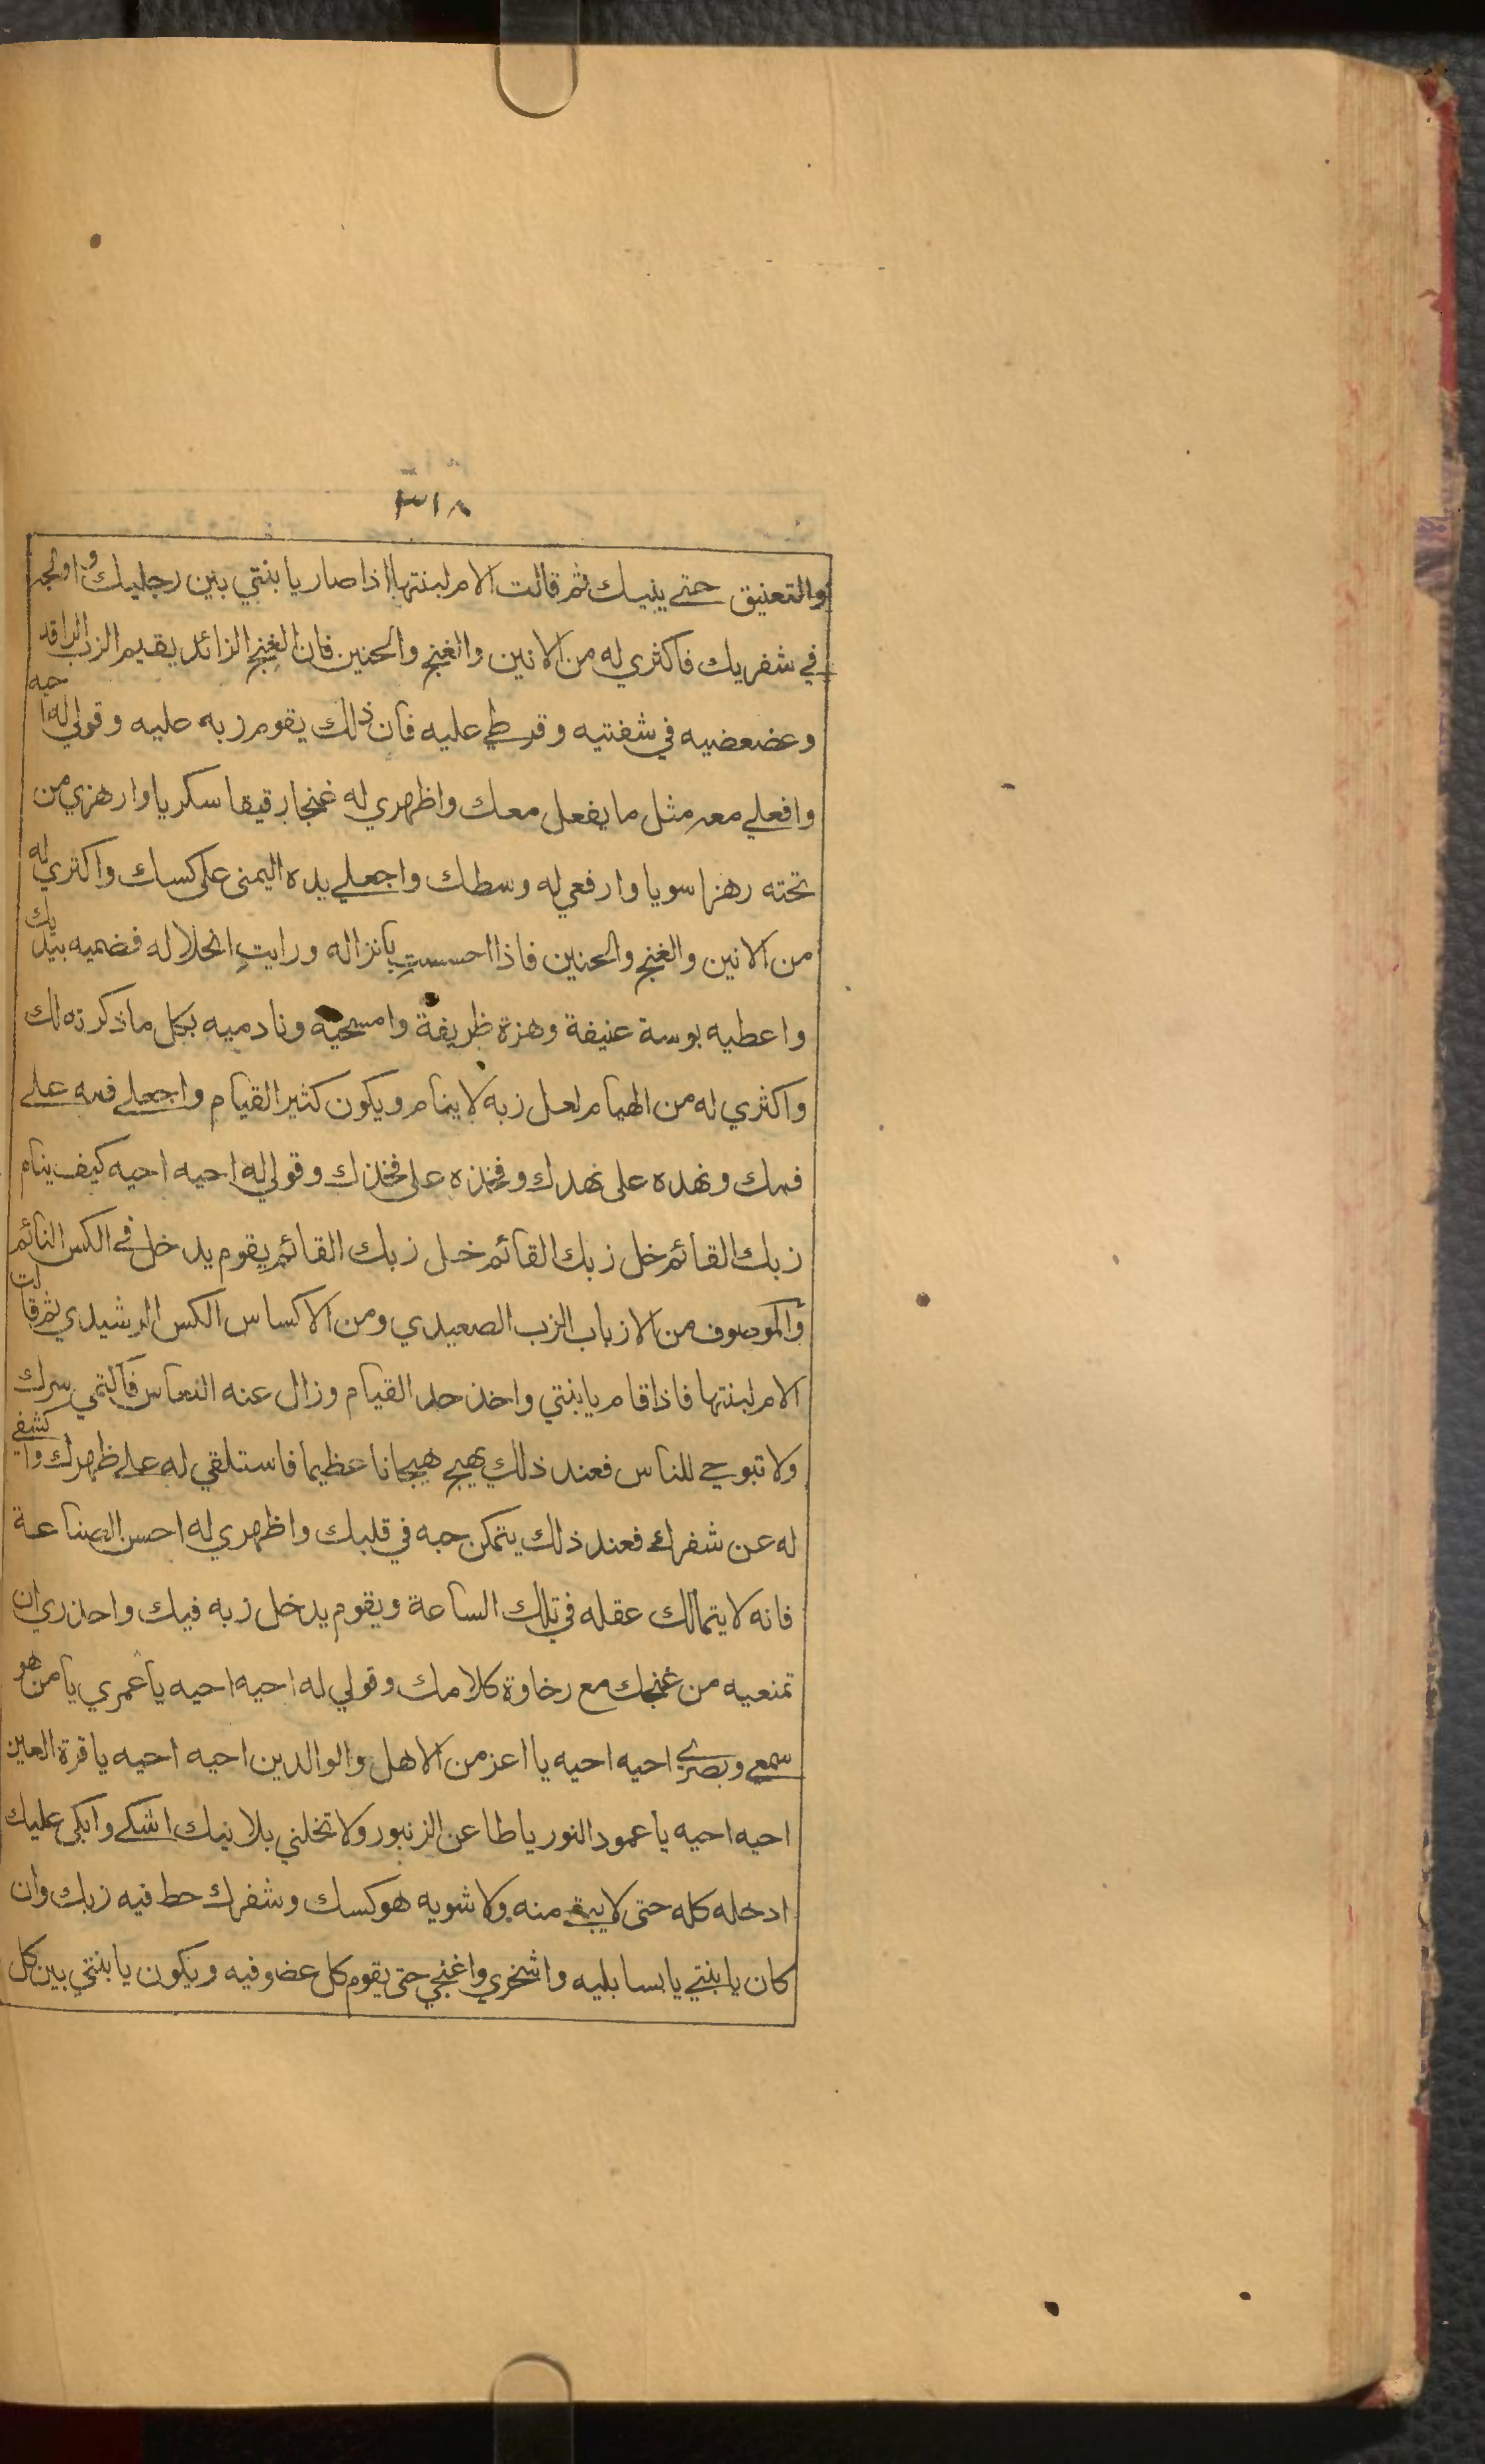 ٣١٨
والتعنيق حتى ينيك ثم قالت الام لبنتها اذا صار يا بنتي بين رجليك واولجه
في شفريك فاكثري له من الانين والغنج والحنين فان الغنج الزائد يقيم الزب الراقد
وعضعضيه في شفتيه وقرطي عليه فان ذلك يقوم زبه عليه وقولي له احيه
وافعلي معه مثل ما يفعل معك واظهري له غنجا رقيقا سكريا وارهزي من
تحته رهزا سويا وارفعي له وسطك واجعلي يده اليمنى على كسك واكثري له
من الانين والغنج والحنين فاذا احسست بانزاله ورايت انحلاله فضميه بيديك
واعطيه بوسة عنيفة وهزة ظريفة وامسحيه ونادميه بكل ما ذكرته لك
واكثري له من الهيام لعل زبه لا ينام ويكون كثير القيام واجعلي فمه على
فمك ونهده على نهدك وفخذه على فخذك وقولي له احيه احيه كيف ينام
زبك القائم خل زبك القائم خل زبك القائم يقوم يدخل في الكس النائم
والموصوف من الازباب الزب الصعيدي ومن الاكساس الكس الرشيدي ثم قالت
الام لبنتها فاذا قام يا بنتي واخذ حد القيام وزال عنه النعاس فاكتمي سرك
ولا تبوحي للناس فعند ذلك يهيج هيجانا عظيما فاستلقي له على ظهرك واكشفي
له عن شفرك فعند ذلك يتمكن حبه في قلبك واظهري له احسن الصناعة
فانه لا يتمالك عقله في تلك الساعة ويقوم يدخل زبه فيك واحذري ان
تمنعيه من غنجك مع رخاوة كلامك وقولي له احيه احيه يا عمري يا من هو
سمعي وبصري احيه احيه يا اعز من الاهل والوالدين احيه احيه يا قرة العين
احيه احيه يا عمود النور يا طاعن الزنبور ولا تخلني بلا نيك اشكي وابكي عليك
ادخله كله حتى لا يبق منه ولا شويه هو كسك وشفرك حط فيه زبك وان
كان يا بنتي يابسا بليه واشخري واغنجي حتى يقوم كل عضو فيه ويكون يا بنتي بين كل